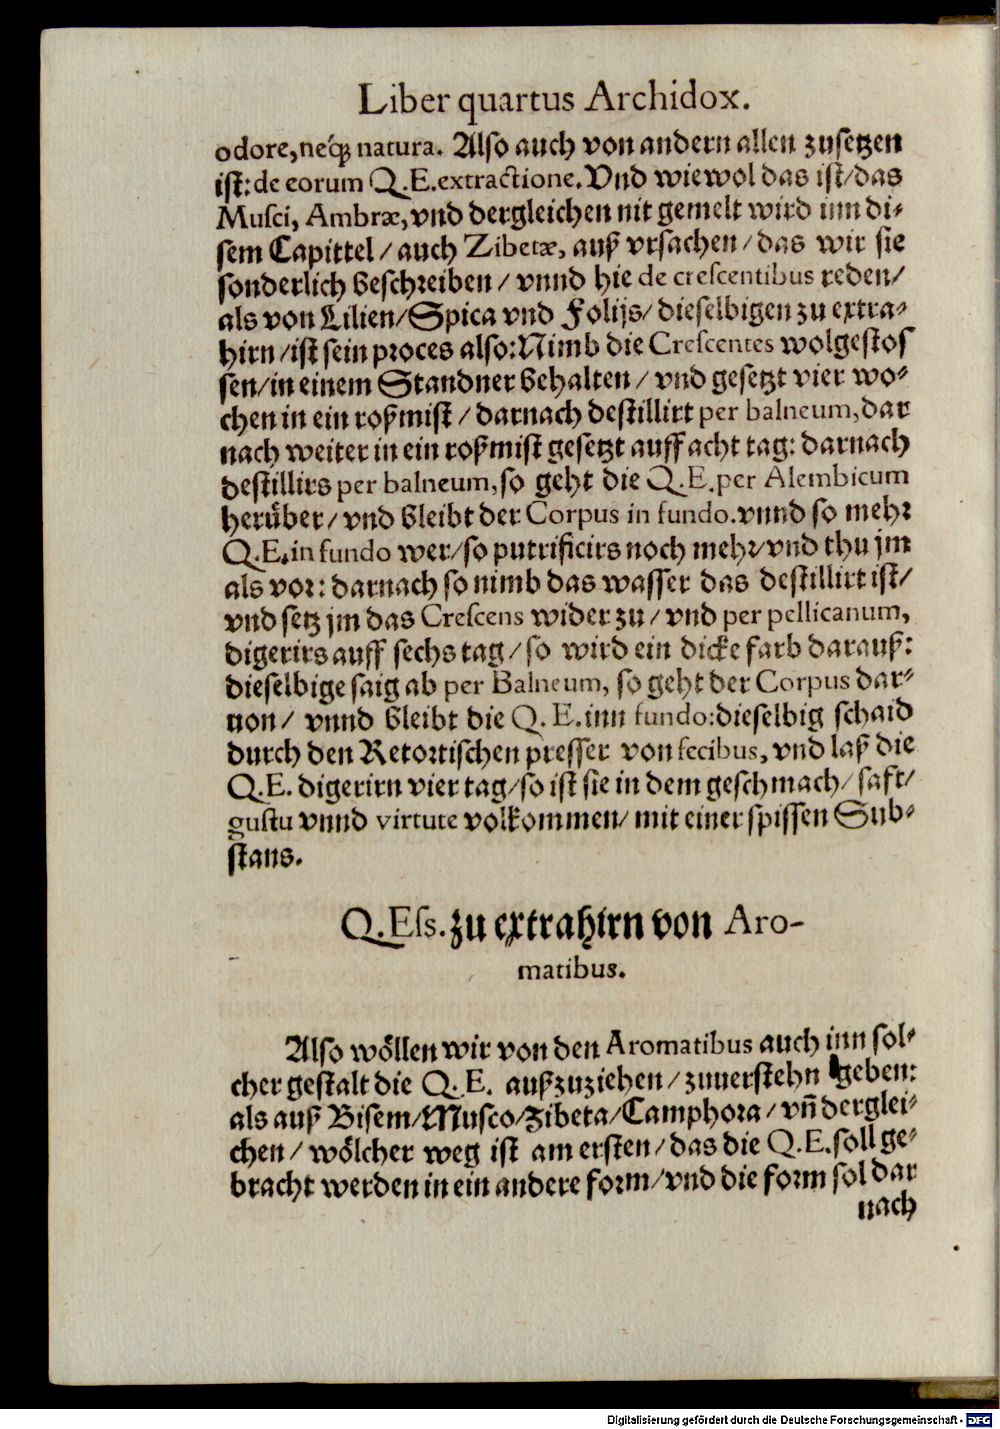 Liber quartus Archidox.
odore, neq́; natura. Also auch von andern allen zusetzen
ist: de eorum Q.E. extractione. Vnd wiewol das ist/das
Musci, Ambræ, vnd dergleichen nit gemelt wird inn di⸗
sem Capittel/ auch Zibetæ, auß vrsachen/ das wir sie
sonderlich beschreiben/ vnnd hie de crescentibus reden/
als von Lilien/Spica vnd Folijs/ dieselbigen zu extra⸗
hirn/ist sein proces also: Nimb die Crescentes wolgestos
sen/in einem Standner behalten/ vnd gesetzt vier wo⸗
chen in ein roßmist/ darnach destillirt per balneum, dar
nach weiter in ein roßmist gesetzt auff acht tag: darnach
destillirs per balneum, so geht die Q.E. per Alembicum
herüber/ vnd bleibt der Corpus in fundo. vnnd so mehr
Q.E. in fundo wer/so putrificirs noch mehr/vnd thu jm
als vor: darnach so nimb das wasser das destillirt ist/
vnd setz jm das Crescens wider zu/ vnd per pellicanum,
digerirs auff sechs tag/ so wird ein dicke farb darauß:
dieselbige saig ab per Balneum, so geht der Corpus dar⸗
uon/ vnnd bleibt die Q.E. inn fundo: dieselbig schaid
durch den Retortischen presser von fecibus, vnd laß die
Q.E. digerirn vier tag/so ist sie in dem geschmach/ saft/
gustu vnnd virtute volkommen/ mit einer spissen Sub⸗
stans.
Q.Ess. zu extrahirn von Aro-
matibus.
Also wöllen wir von den Aromatibus auch inn sol⸗
cher gestalt die Q.E. außzuziehen/zuuerstehn geben:
als auß Bisem/Musco/Zibeta/Camphora/ vñ derglei⸗
chen/ wölcher weg ist am ersten/ das die Q.E. soll ge⸗
bracht werden in ein andere form/vnd die form sol dar
nach
Digitalisierung gefördert durch die Deutsche Forschungsgemeinschaft - DFG